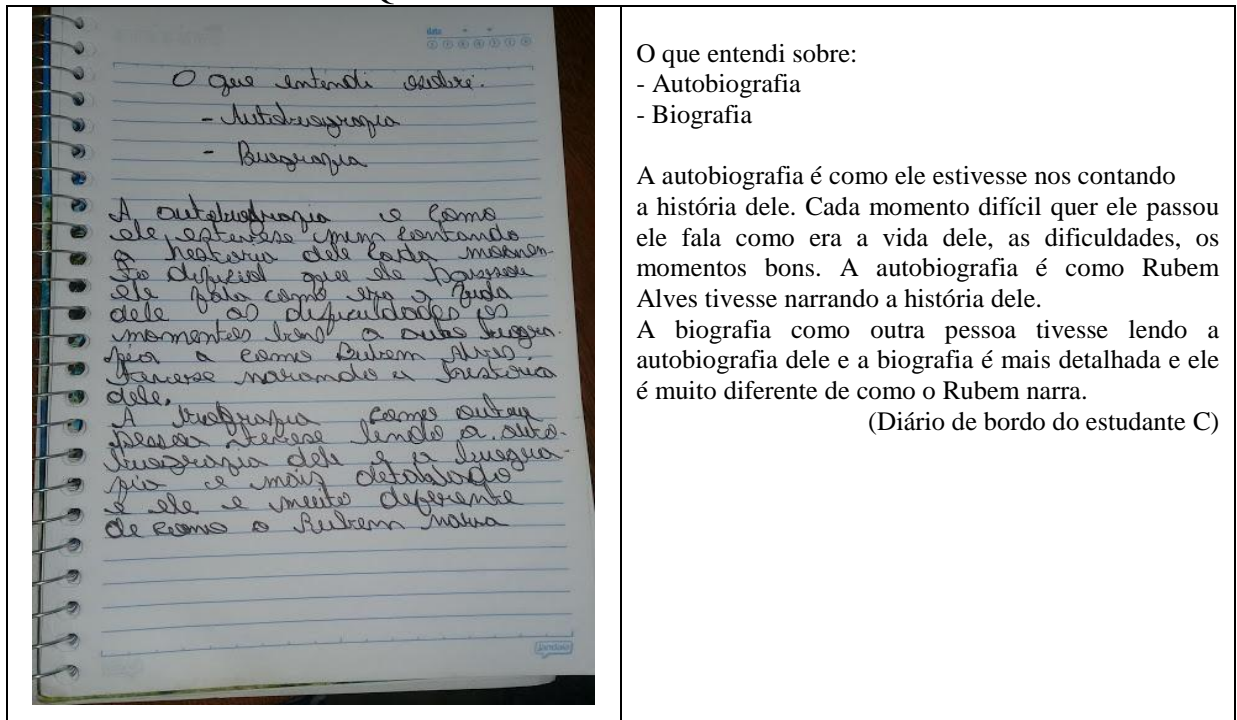 data
O que entendi sobre:
- Autobiografia
- Biografia
A autobiografia e como
ele estevese contando
a historia dele cada momen-
to dificiel que ele passou
ele fala como era a vida
dele as dificuldades os
momentos bons a auto biogra-
fia a como Rubem Alves.
tevese narando a historia
dele.
A biografia como outra
pessoa tevese lendo a auto-
biografia dele e a biogra-
fia e mais detalhado
e ele e muito deferente
de como o Rubem narra
jandaia
O que entendi sobre:
- Autobiografia
- Biografia
A autobiografia é como ele estivesse nos contando
a história dele. Cada momento difícil quer ele passou
ele fala como era a vida dele, as dificuldades, os
momentos bons. A autobiografia é como Rubem
Alves tivesse narrando a história dele.
A biografia como outra pessoa tivesse lendo a
autobiografia dele e a biografia é mais detalhada e ele
é muito diferente de como o Rubem narra.
(Diário de bordo do estudante C)